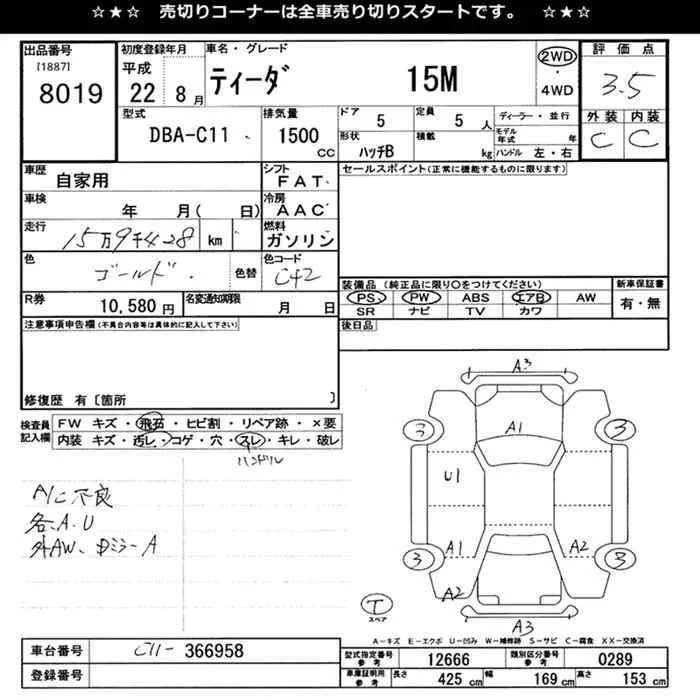 ☆★☆ 売切りコーナーは全車売り切りスタートです。 ☆★☆
出品番号 [1887] 8019
初度登録年月 平成 22 8月
車名・グレード ティーダ 15M
2WD ・ 4WD
評価点 3.5
外装 C 内装 C
型式 DBA-C11
排気量 1500 CC
ドア 5
定員 5 人
形状 ハッチB
積載 kg
ディーラー・並行
モデル年式 年
ハンドル 左・右
車歴 自家用
シフト FAT
車検 年 月( 日)
冷房 AAC
走行 15万9千428 km
燃料 ガソリン
色 ゴールド 色替
色コード C42
R券 10,580 円
名変通知期限 月 日
セールスポイント(正常に機能するものに限ります)
装備品 (純正品に限り○をつけてください)
PS PW ABS エアB AW
SR ナビ TV カワ
新車保証書 有・無
後日品
注意事項申告欄(不具合内容等は具体的に記入して下さい)
修復歴 有〔箇所 〕
検査員記入欄
FW キズ・飛石・ヒビ割・リペア跡・×要
内装 キズ・汚レ・コゲ・穴・スレ・キレ・破レ
ハンドル
A/C不良
各、A、U
外AW、Dミラー A
A3
A1
3 3
U1
A1 A2
3 3
A2
A3
T スペア
A-キズ E-エクボ U-凹み W-補修跡 S-サビ C-腐食 XX-交換済
車台番号 C11- 366958
登録番号
型式指定番号 参考 12666
類別区分番号 参考 0289
車庫証明用 参考 長さ 425 cm 幅 169 cm 高さ 153 cm